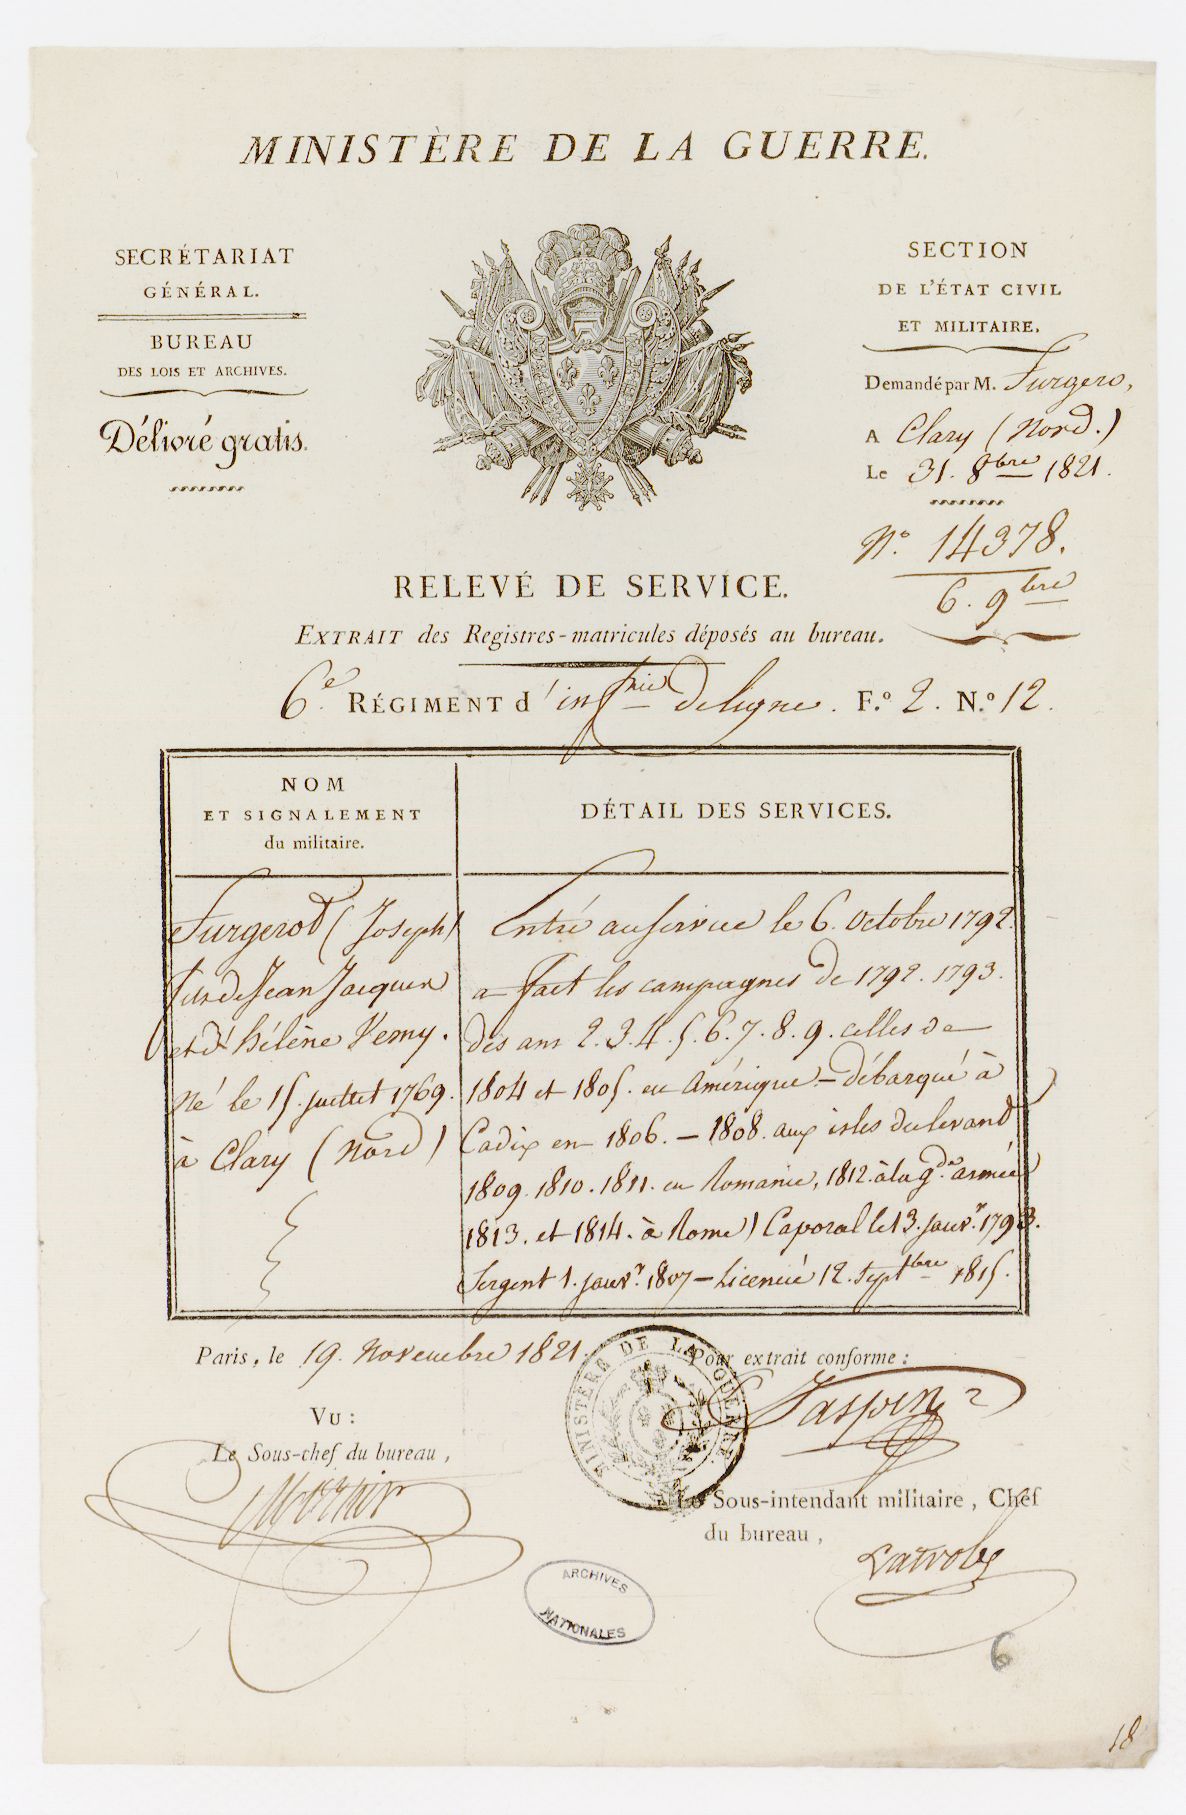 MINISTÈRE DE LA GUERRE.
SECRÉTARIAT
GÉNÉRAL.
BUREAU
DES LOIS ET ARCHIVES.
Délivré gratis.
SECTION
DE L'ÉTAT CIVIL
ET MILITAIRE.
Demandé par M. Furgero,
A Clary (Nord.)
Le 31. 8bre 1821.
N.° 14378.
6. 9bre
RELEVÉ DE SERVICE.
EXTRAIT des Registres-matricules déposés au bureau.
6e. RÉGIMENT d'infrie de ligne. F.° 2. N.° 12.
NOM
ET SIGNALEMENT
du militaire.
Furgerot (Joseph)
fils de Jean Jacques
et d'hélène Remy.
Né le 15. juillet 1769.
à Clary (Nord)
DÉTAIL DES SERVICES.
Entré au service le 6. Octobre 1792.
a fait les campagnes de 1792. 1793.
des ans 2. 3. 4. 5. 6. 7. 8. 9. celles de
1804 et 1805. en Amérique - débarqué à
Cadix en 1806. - 1808. aux isles du levand
1809. 1810. 1811. en Romanie, 1812. à la gde. armée
1813. et 1814. à Rome) Caporal le 13. janvr. 1793.
Sergent 1. janvr. 1807 - Licencié 12. Septbre 1815.
Paris, le 19. Novembre 1821.
Pour extrait conforme :
MINISTÈRE DE LA GUERRE
VU :
Le Sous-chef du bureau,
Le Sous-intendant militaire, Chef
du bureau,
ARCHIVES
NATIONALES
6
18